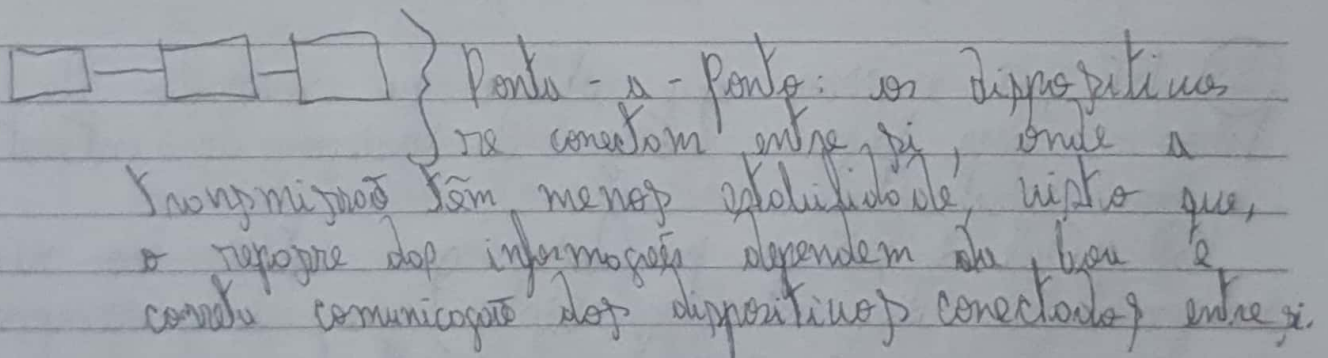 Ponto-a-Ponto: os dispositivos
se conectam entre si, onde a
transmissão têm menos estabilidade, visto que,
o repasse das informações dependem da boa e
correta comunicação dos dispositivos conectados entre si.